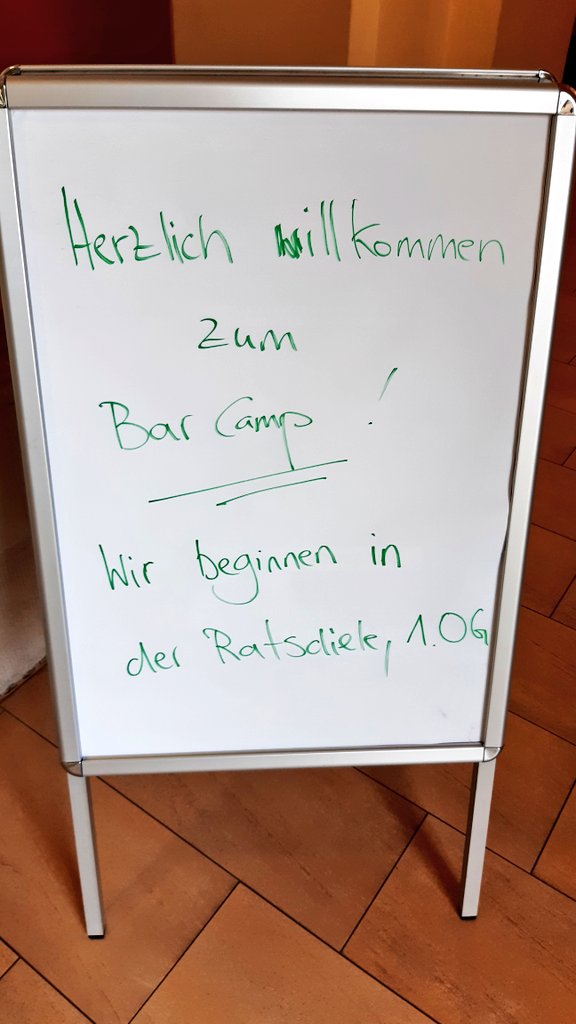 Herzlich willkommen
zum
Bar Camp !
Wir beginnen in
der Ratsdiele, 1.OG